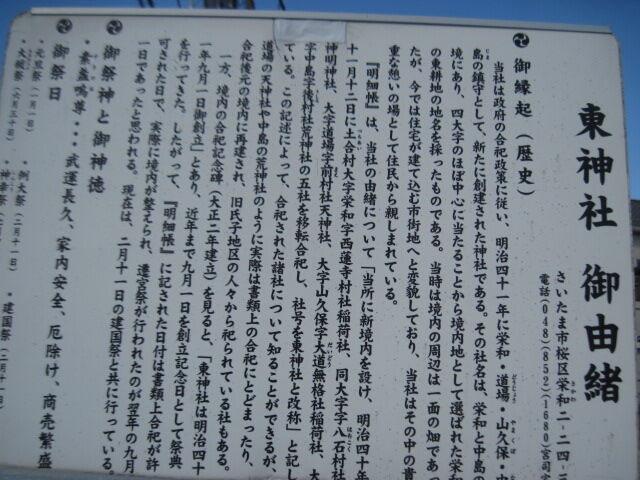 東神社 御由緒
さいたま市桜区栄和二-二四-
電話(048)(852)(1680)宮司宅
御縁起(歴史)
当社は政府の合祀政策に従い、明治四十一年に栄和・道場・山久保・中
島の鎮守として、新たに創建された神社である。その社名は、栄和と中島の
境にあり、四大字のほぼ中心に当たることから境内地として選ばれた栄和
の東耕地の地名を採ったものである。当時は境内の周辺は一面の畑であっ
たが、今では住宅が建て込む市街地へと変貌しており、当社はその中の貴
重な憩いの場として住民から親しまれている。
『明細帳』は、当社の由緒について「当所に新境内を設け、明治四十年
十一月十二日に土合村大字栄和字西蓮寺村社稲荷社、同大字字八石村社
神明神社、大字道場字前村社天神社、大字山久保字大道無格社稲荷社、大
字中島字浅間村社荒神社の五社を移転合祀し、社号を東神社と改称」と記し
ている。この記述によって、合祀された諸社について知ることができるが、
道場の天神社や中島の荒神社のように実際は書類上の合祀にとどまったり、
合祀後元の境内に再建され、旧氏子地区の人々から祀られている社もある。
一方、境内の合祀記念碑(大正二年建立)を見ると、「東神社は明治四十
一年九月一日御創立」とあり、近年まで九月一日を創立記念日として祭典
を行ってきた。したがって、『明細帳』に記された日付は書類上合祀が許
可された日で、実際に境内が整えられ、遷宮祭が行われたのが翌年の九月
一日であったと思われる。現在は、二月十一日の建国祭と共に行っている。
御祭神と御神徳
・素盞嗚尊…武運長久、家内安全、厄除け、商売繁盛
御祭日
・元旦祭(一月一日) ・例大祭(二月十一日) ・建国祭(二月十一日)
・大祓祭(六月三十日) ・神幸祭(七月